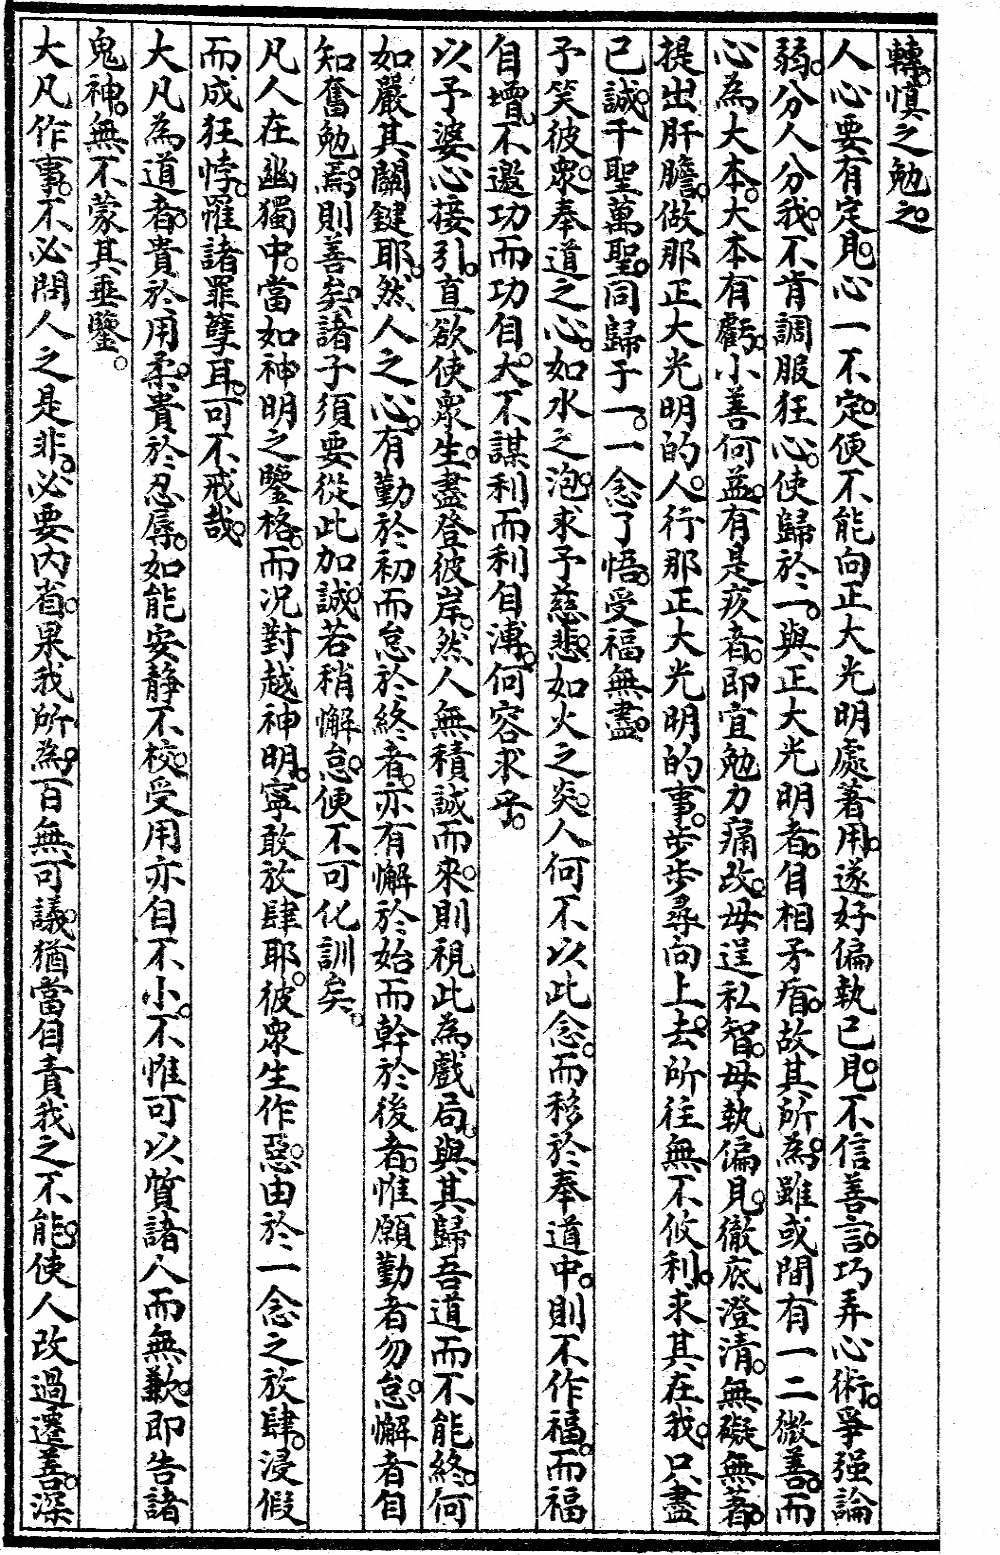 轉。慎之勉之。
人心要有定見。心一不定。便不能向正大光明處著用。遂好偏執已見。不信善言。巧弄心術。爭强論
弱。分人分我。不肯調服狂心。使歸於一。與正大光明者。自相矛盾。故其所為。雖或間有一二微善。而
心為大本。大本有虧。小善何益。有是疚者。即宜勉力痛改。毋逞私智。毋執偏見。徹底澄清。無礙無著。
提出肝膽。做那正大光明的人。行那正大光明的事。步步尋向上去。所往無不攸利。求其在我。只盡
已誠。千聖萬聖。同歸于一。一念了悟。受福無盡。
予笑彼衆。奉道之心。如水之泡。求予慈悲。如火之炎。人何不以此念。而移於奉道中。則不作福。而福
自增。不邀功而功自大。不謀利而利自溥。何容求乎。
以予婆心接引。直欲使衆生。盡登彼岸。然人無積誠而來。則視此為戲局。與其歸吾道而不能終。何
如嚴其關鍵耶。然人之心。有勤於初而怠於終者。亦有懈於始而幹於後者。惟願勤者勿怠。懈者自
知奮勉焉。則善矣。諸子須要從此加誠。若稍懈怠。便不可化訓矣。
凡人在幽獨中。當如神明之鑒格。而况對越神明。寧敢放肆耶。彼衆生作惡。由於一念之放肆。浸假
而成狂悖。罹諸罪孽耳。可不戒哉。
大凡為道者。貴於用柔。貴於忍辱。如能安靜不校。受用亦自不小。不惟可以質諸人而無歉。即告諸
鬼神。無不蒙其垂鑒。
大凡作事。不必問人之是非。必要內省。果我所為。一百無可議。猶當自責我之不能。使人改過遷善。深